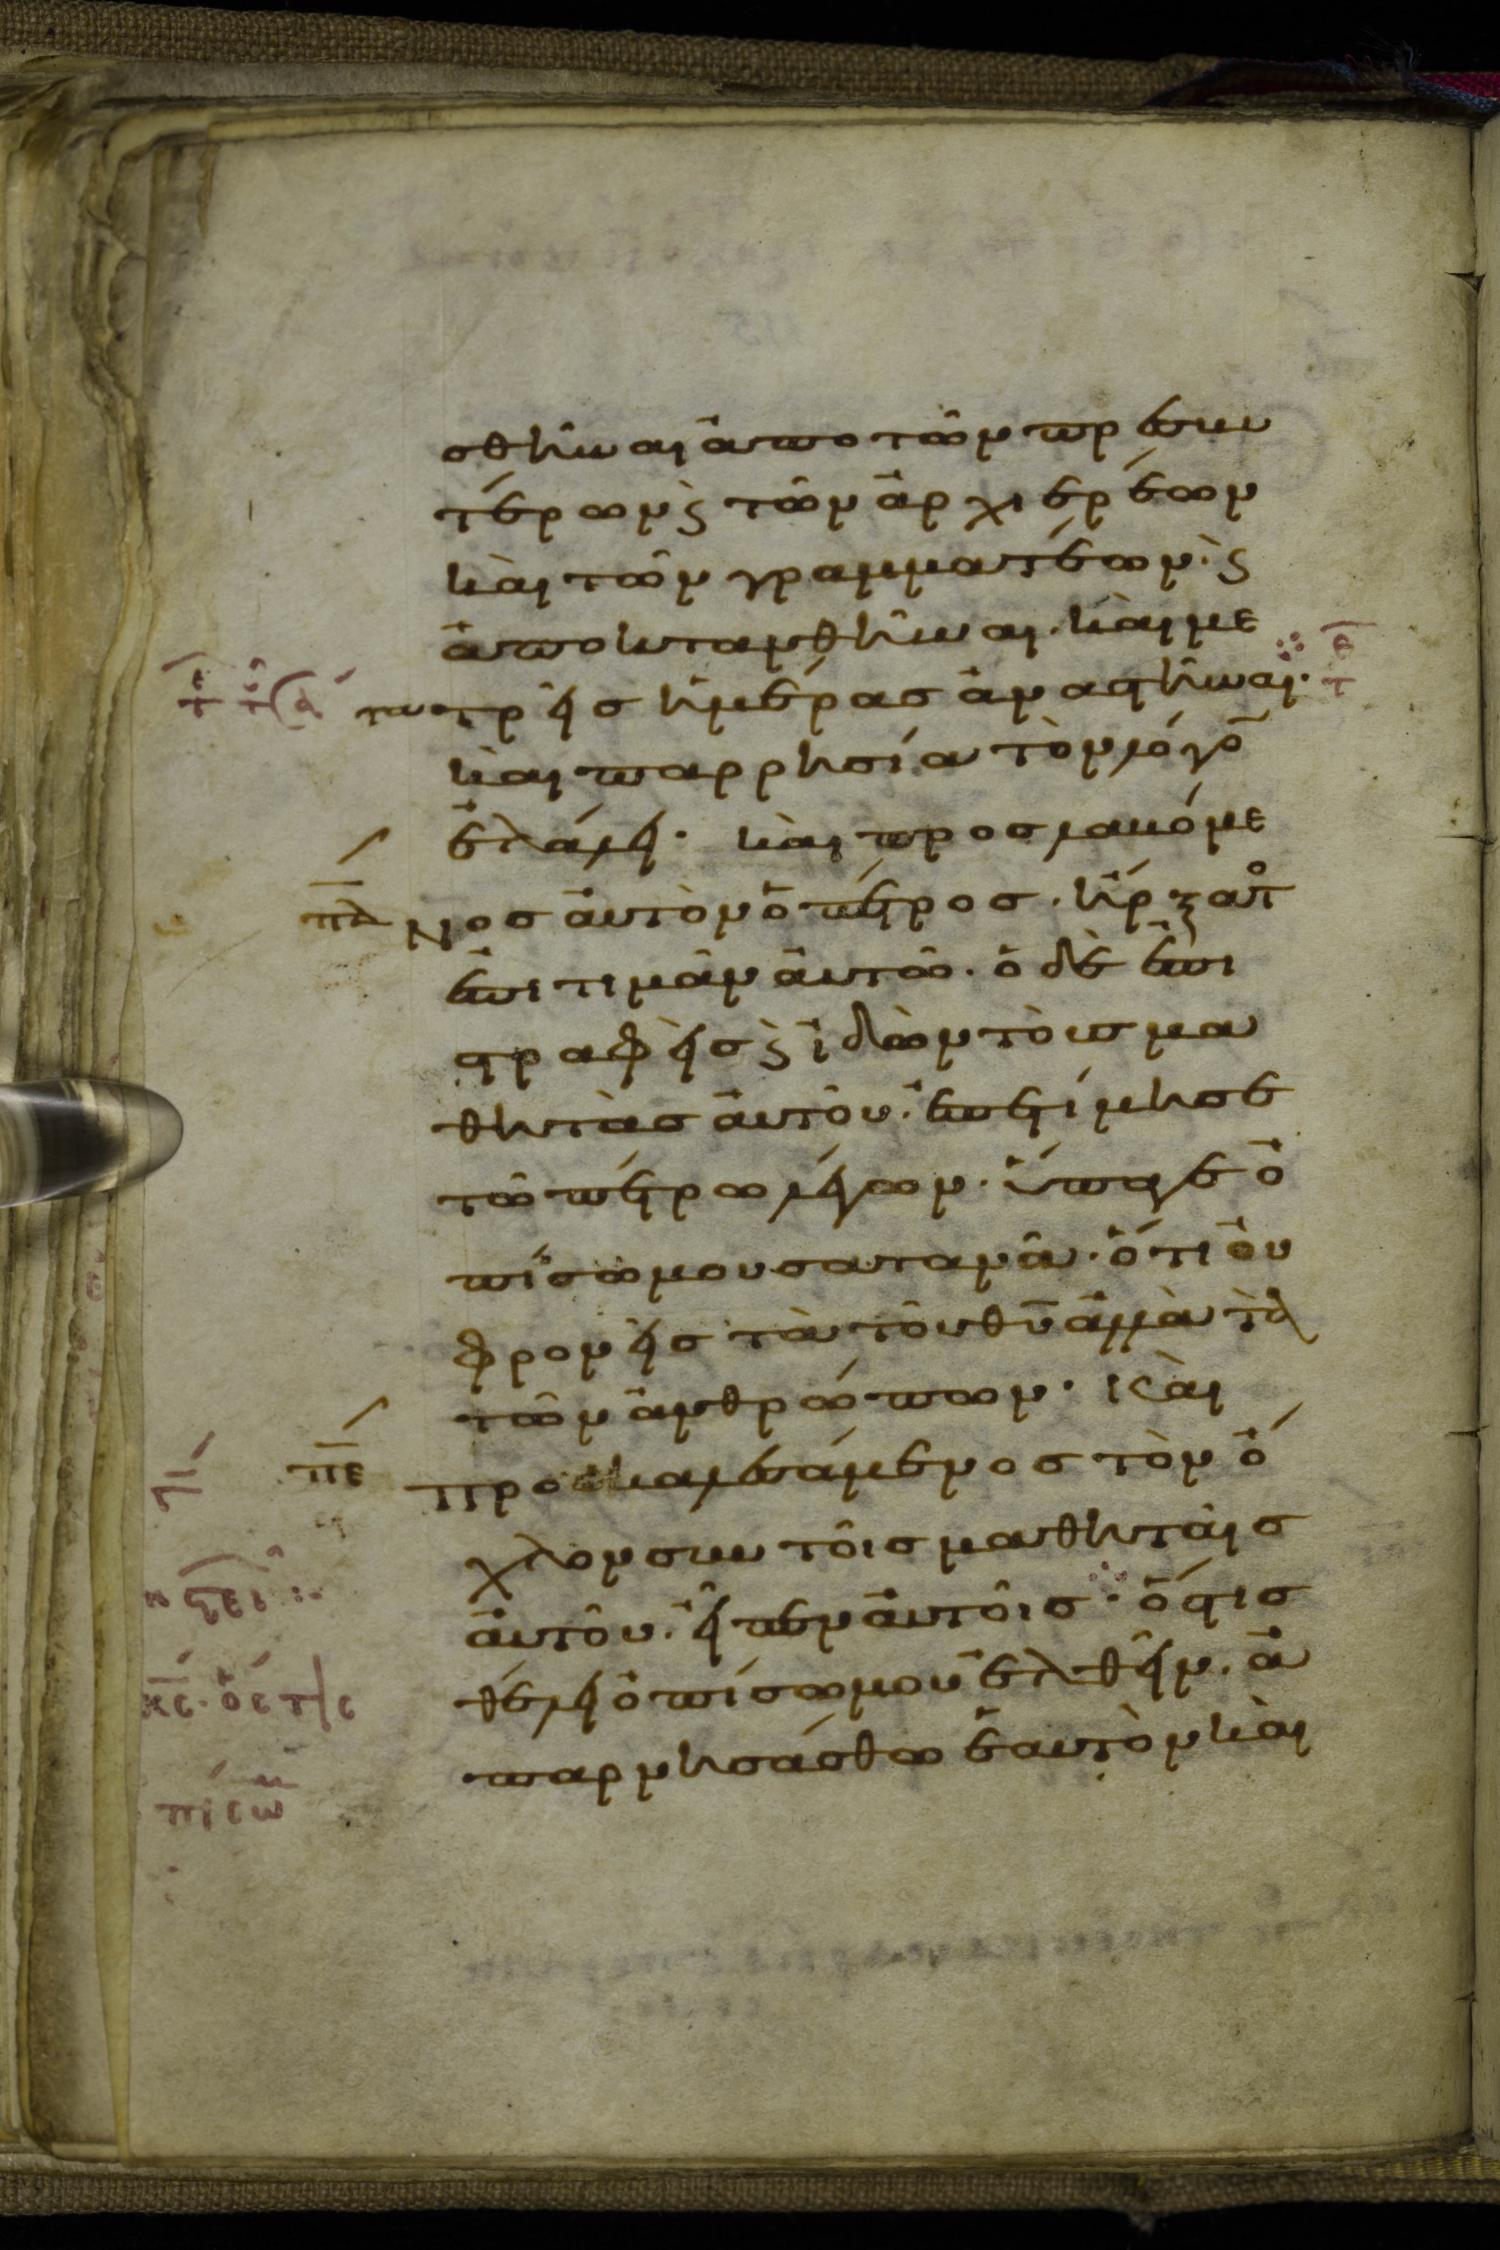 σθῆναι ἀπο τῶν πρεσβυ
τέρων ϗ τῶν ἀρχιερέων
καὶ τῶν γραμματέων· ϗ
ἀποκτανθῆναι. καὶ με
τὰ τρεῖς ἡμέρας ἀναστῆναι·
καὶ παρρησία τὸν λόγο̅
ἐλάλει· καὶ προσλαβόμε
πδ νος ἀυτὸν ὁ πέτρος. ἤρξατο
ἐπιτιμᾶν ἀυτῶ. ὁ δὲ ἐπι
στραφεὶς ϗ ἰδὼν τοὺς μα
θητὰς ἀυτοῦ. ἐπετίμησε
τῶ πέτρω λέγων. ὕπαγε ὀ
πίσω μου σατανᾶ. ὅτι ὀυ
φρονεῖς τὰ τοῦ θυ̅ ἀλλὰ τὰ
τῶν ἀνθρώπων. Καὶ
πε προσκαλεσάμενος τὸν ὄ
χλον συν τοῖς μαθηταῖς
ἀυτοῦ. εἶπεν ἀυτοῖς. ὅστις
θέλει ὀπίσω μου ἐλθεῖν. ἀ
παρνησάσθω ἑαυτὸν καὶ
κε̅. ὅστις
πίσω